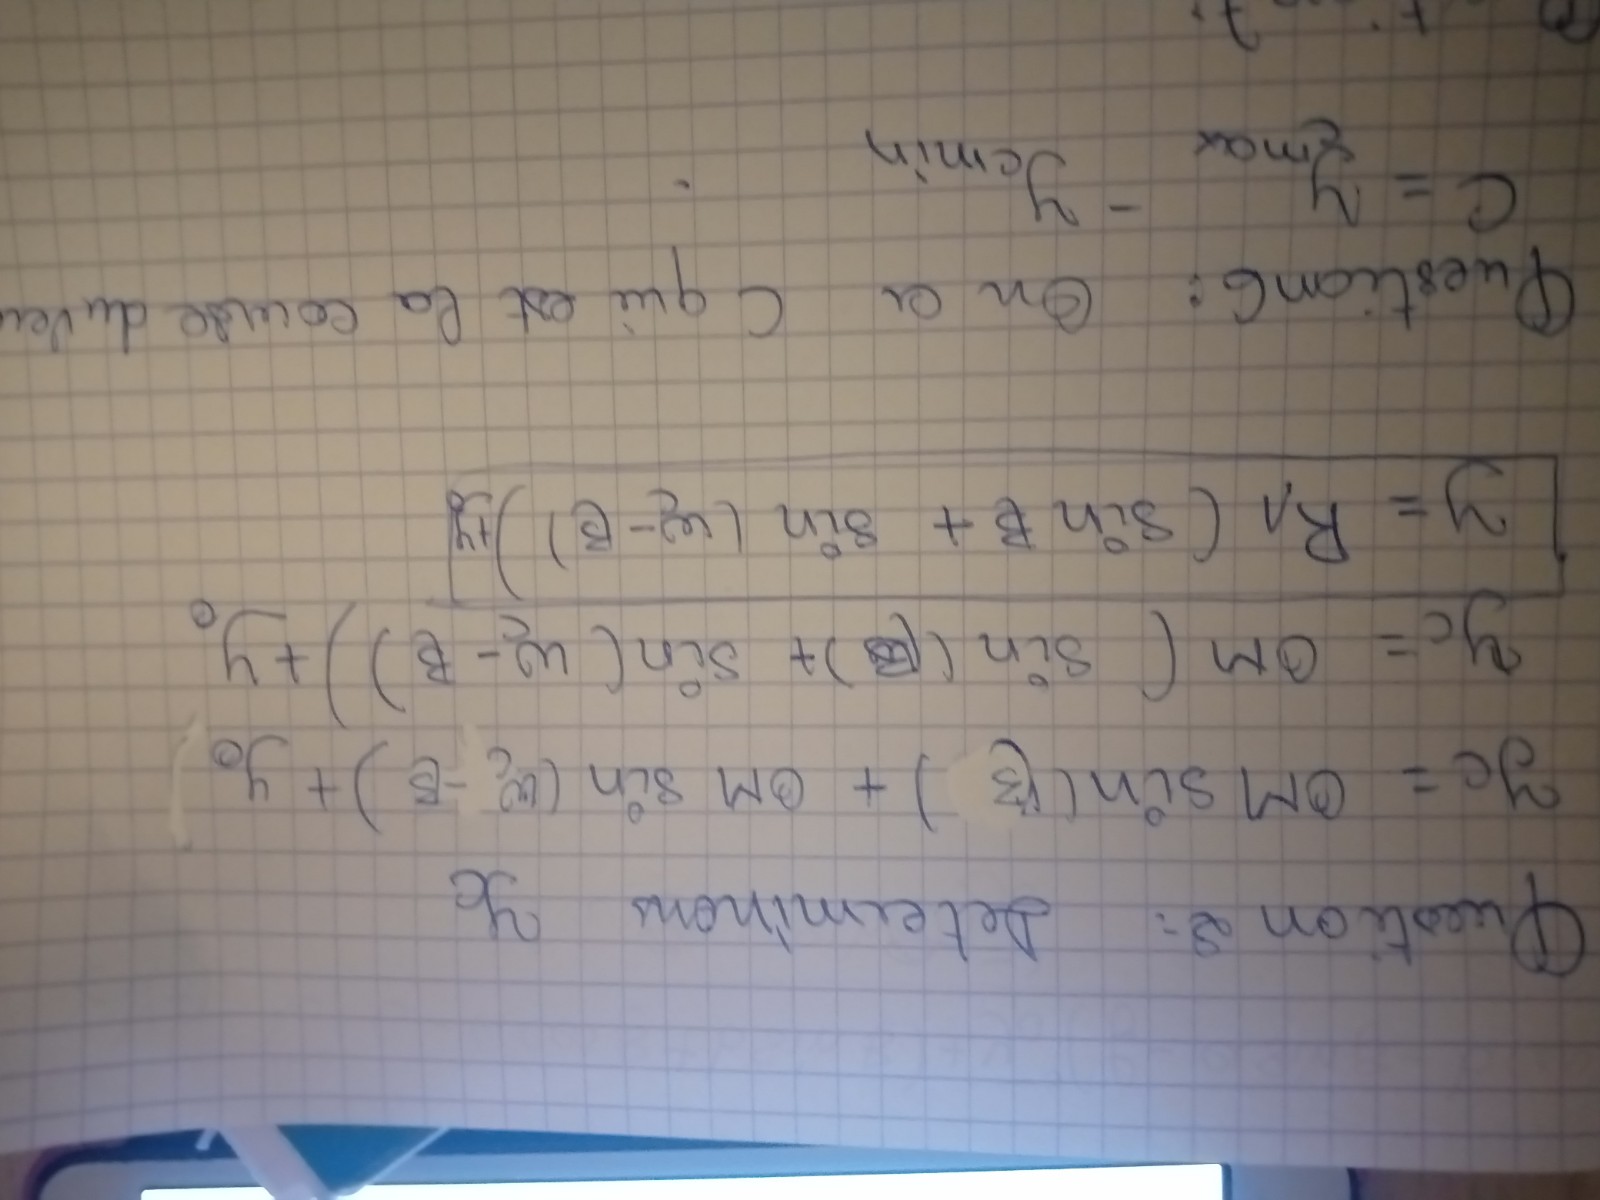 Question 2: Determinons yc
yc = OM sin(β) + OM sin(φc - β) + yo
yc = OM ( sin(β)+ sin(φc - β)) + yo
y = R1 (sin β + sin (φc - β)) + yo
Question 6: On a C qui est la course du
C = ycmax - ycmin